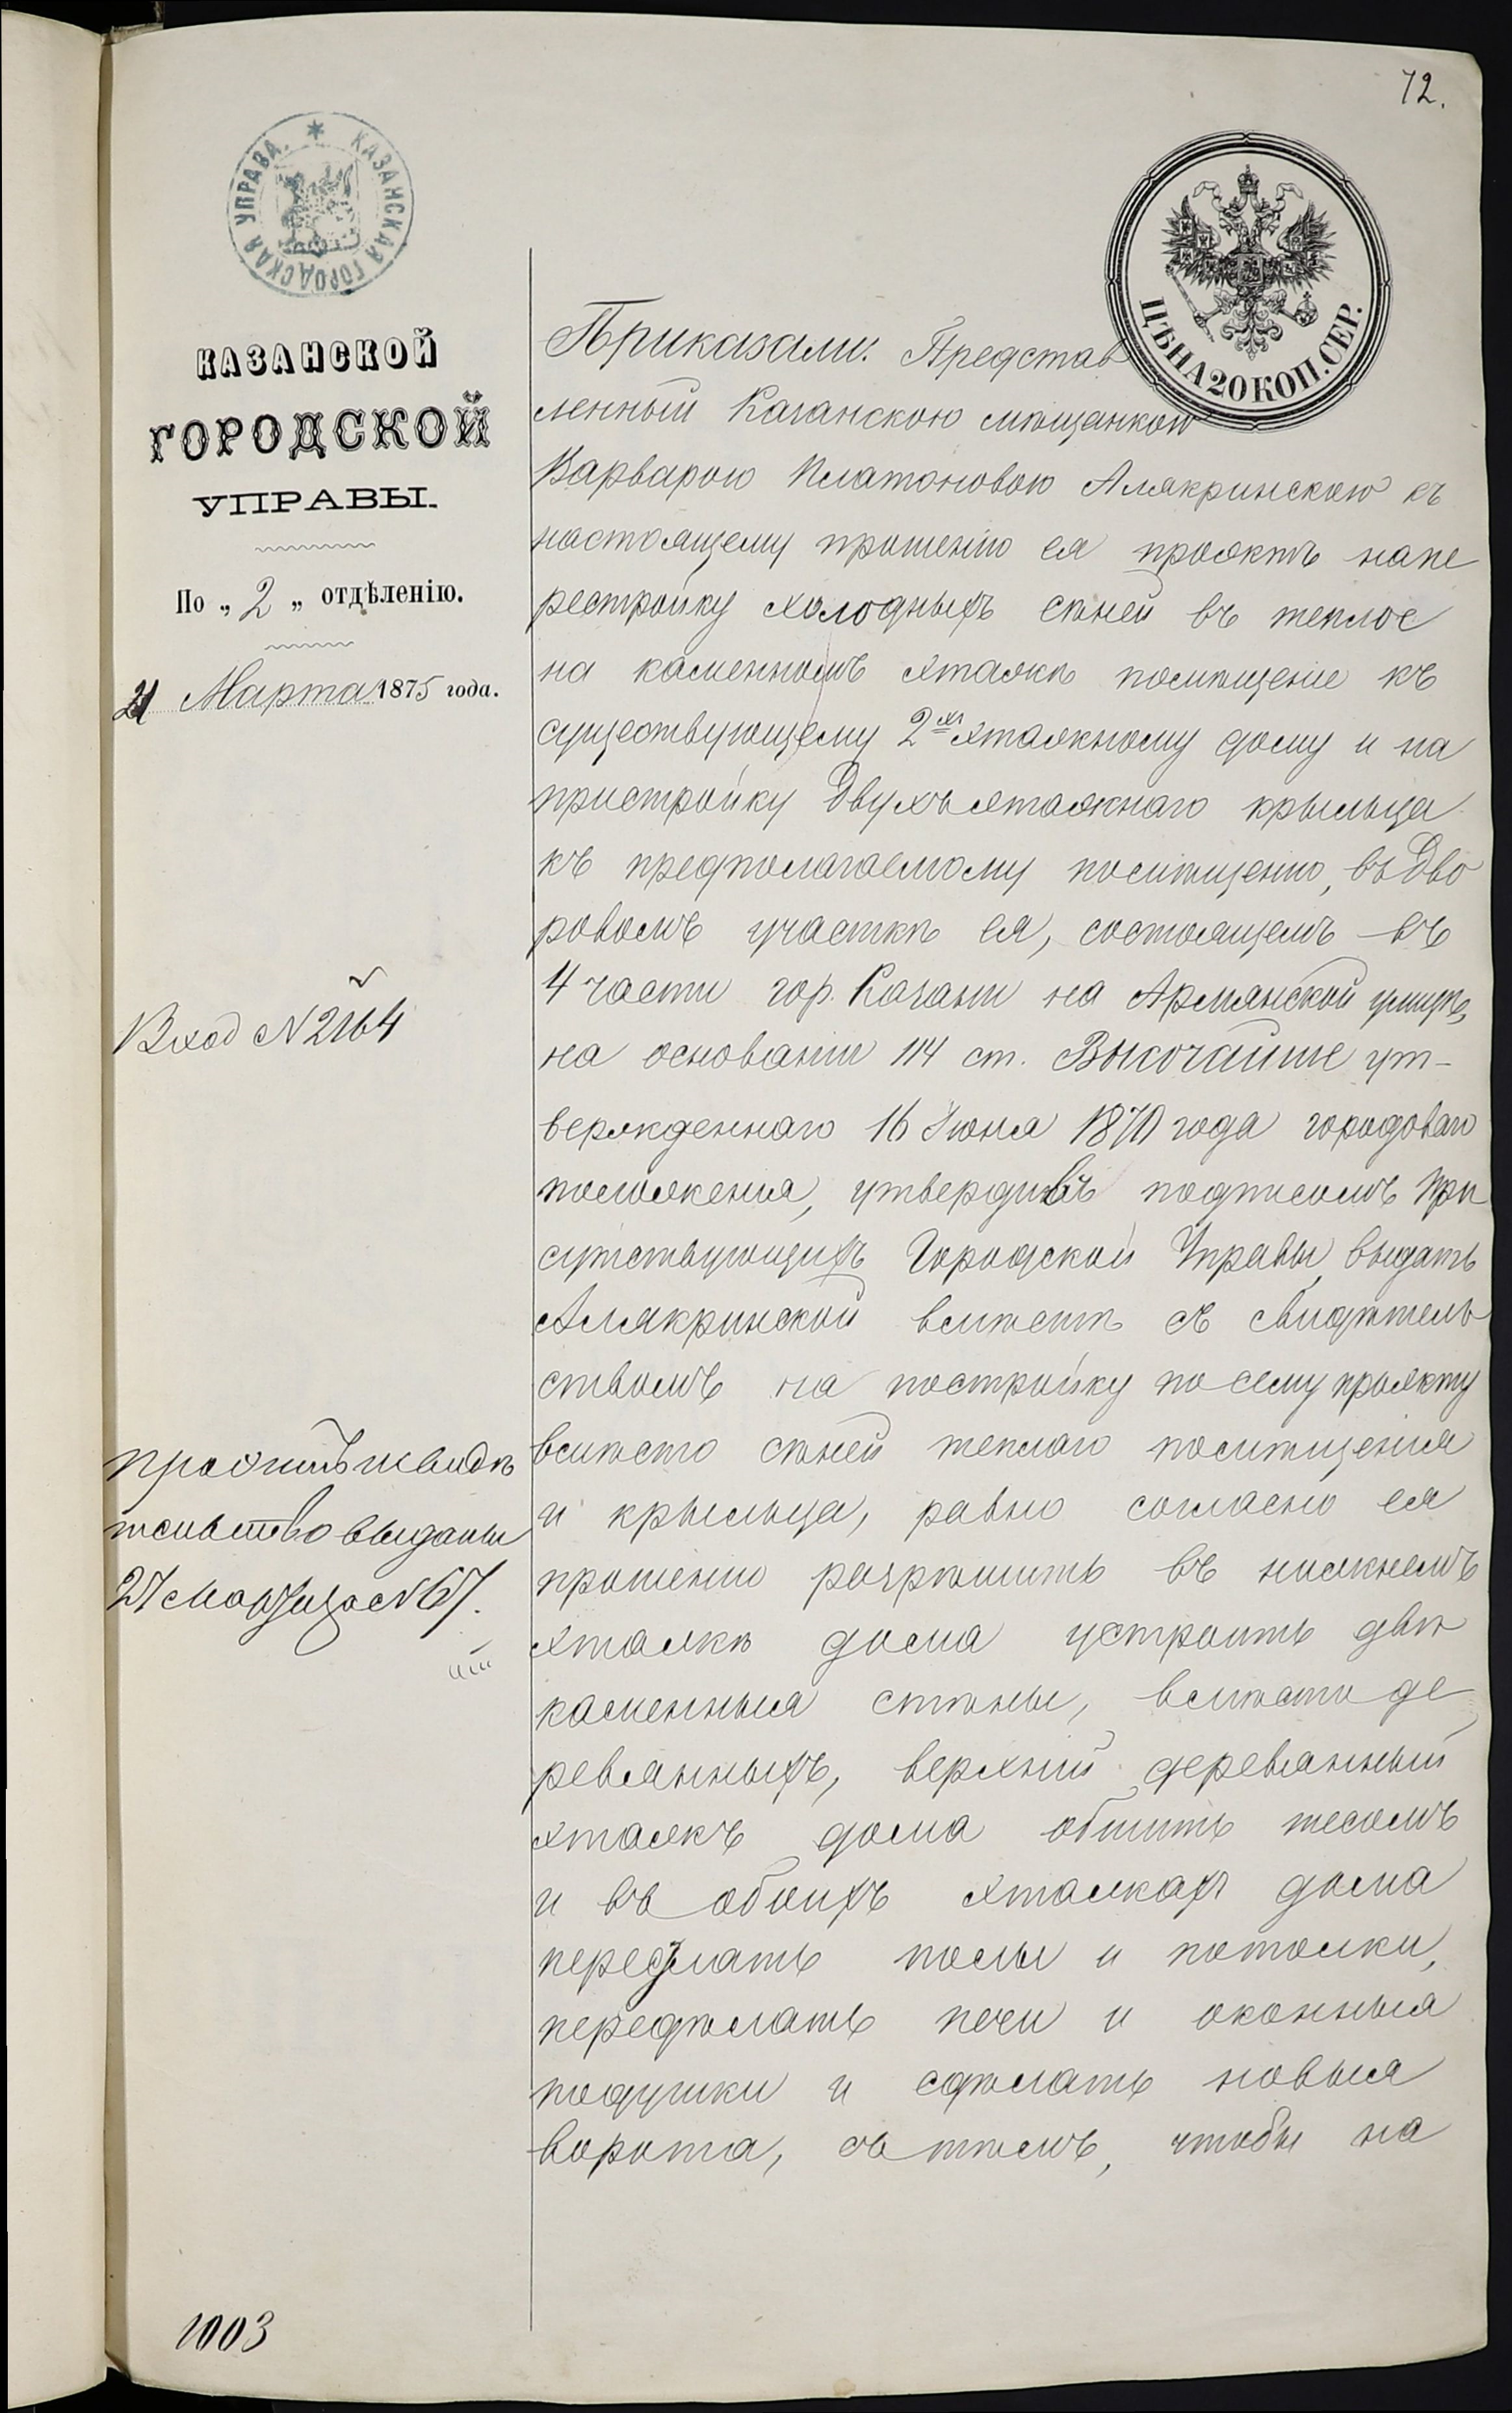 72.
КАЗАНСКАЯ ГОРОДСКАЯ УПРАВА.
ЦѢНА 20 КОП. СЕР.
КАЗАНСКОЙ
ГОРОДСКОЙ
УПРАВЫ.
По „ 2 „ отдѣленію.
21 Марта 1875 года.
Вход N 2164
проэктъ и свидѣ
тельство выданы
27 Марта за N 67.
1003
Приказали: Представ
ленный Казанскою мѣщанкою
Варварою Платоновою Алякринскою къ
настоящему прошенію ея проэктъ на пе
рестройку холодныхъ сѣней въ теплое
на каменномъ этажѣ помѣщеніе къ
существующему 2хъ этажному дому и на
пристройку двухъэтажнаго крыльца
къ предполагаемому помѣщенію, въ дво
ровомъ участкѣ ея, состоящемъ въ
4 части гор. Казани на Армянской улицѣ,
на основаніи 114 ст. Высочайше ут-
вержденнаго 16 Іюня 1870 года городоваго
положенія, утвердивъ подписомъ при
сутствующихъ Городской Управы, выдать
Алякринской вмѣстѣ съ свидѣтель
ствомъ на постройку по сему проэкту
вмѣсто сѣней теплаго помѣщенія
и крыльца, равно согласно ея
прошенію разрѣшить въ нижнемъ
этажѣ дома устроить двѣ
каменныя стѣны, вмѣсто де
ревянныхъ, верхній деревянный
этажъ дома обшить тесомъ
и въ обоихъ этажахъ дома
передѣлать полы и потолки,
передѣлать печи и оконныя
подушки и сдѣлать новыя
ворота, съ тѣмъ, чтобы на